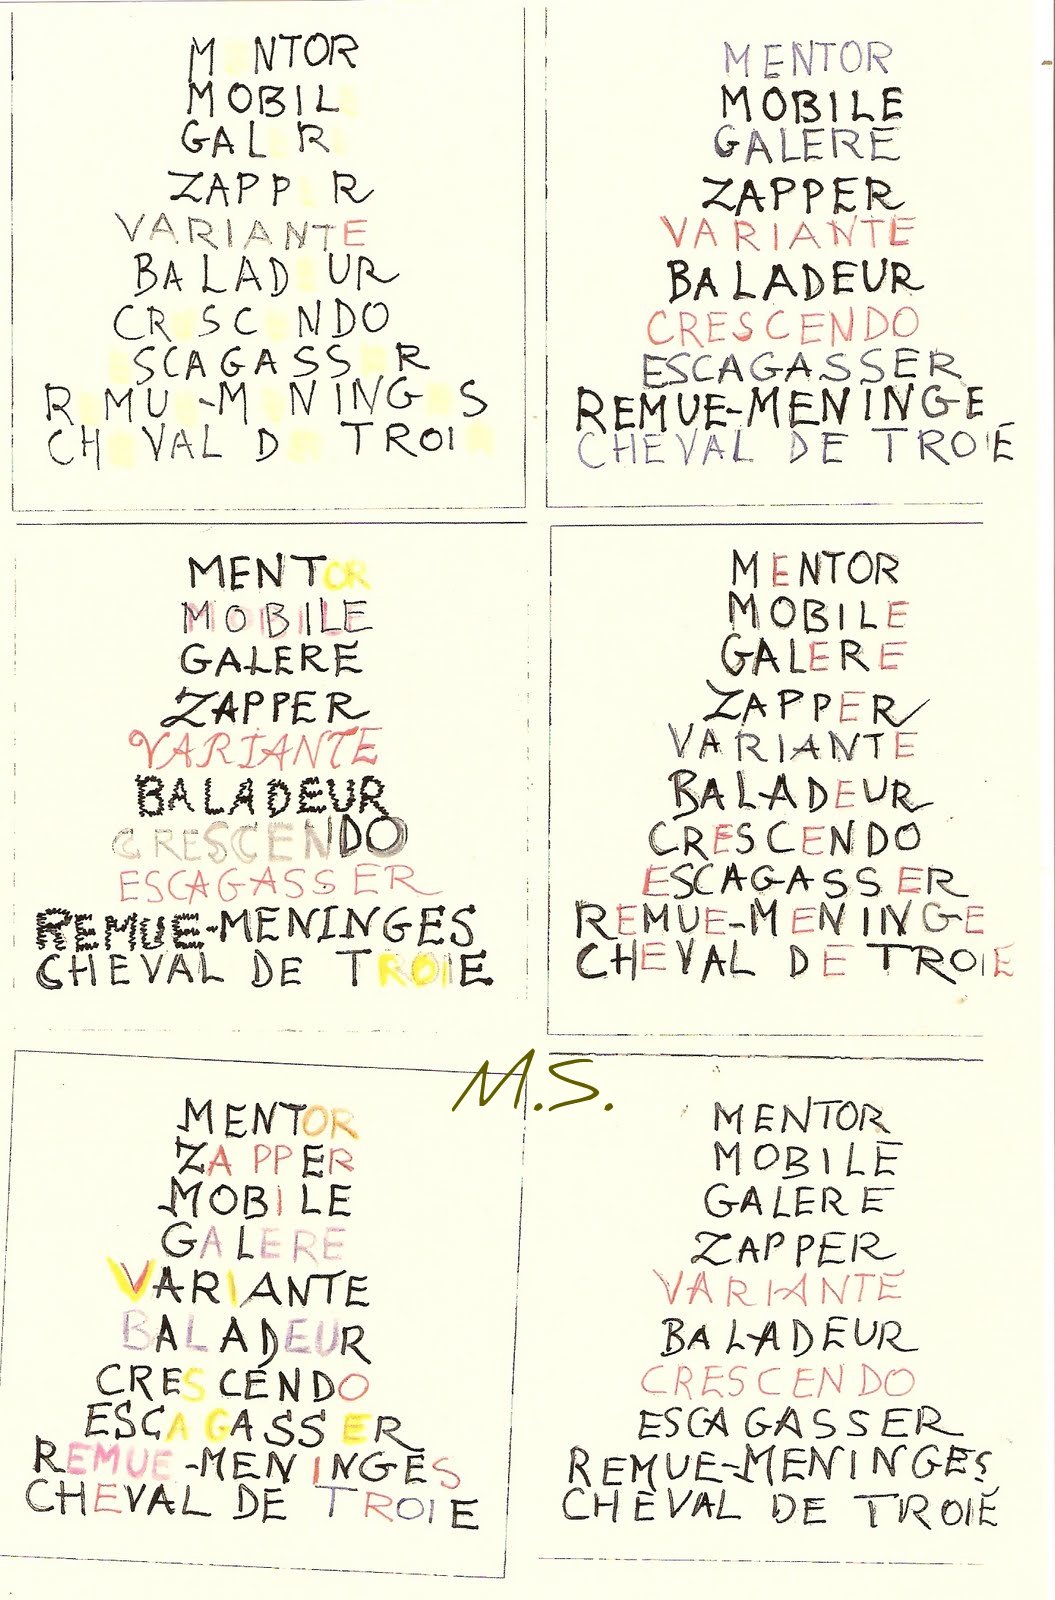 M NTOR
MOBIL
GAL R
ZAPP R
VARIANTE
BALAD UR
CR SC NDO
SCAGASS R
R MU -M NING S
CH VAL D TROI
MENTOR
MOBILE
GALERE
ZAPPER
VARIANTE
BALADEUR
CRESCENDO
ESCAGASSER
REMUE-MENINGE
CHEVAL DE TROIE
MENTOR
MOBILE
GALERE
ZAPPER
VARIANTE
BALADEUR
CRESCENDO
ESCAGASSER
REMUE-MENINGES
CHEVAL DE TROIE
MENTOR
MOBILE
GALERE
ZAPPER
VARIANTE
BALADEUR
CRESCENDO
ESCAGASSER
REMUE-MENINGE
CHEVAL DE TROIE
M.S.
MENTOR
ZAPPER
MOBILE
GALERE
VARIANTE
BALADEUR
CRESCENDO
ESCAGASSER
REMUE-MENINGES
CHEVAL DE TROIE
MENTOR
MOBILE
GALERE
ZAPPER
VARIANTE
BALADEUR
CRESCENDO
ESCAGASSER
REMUE-MENINGES
CHEVAL DE TROIE